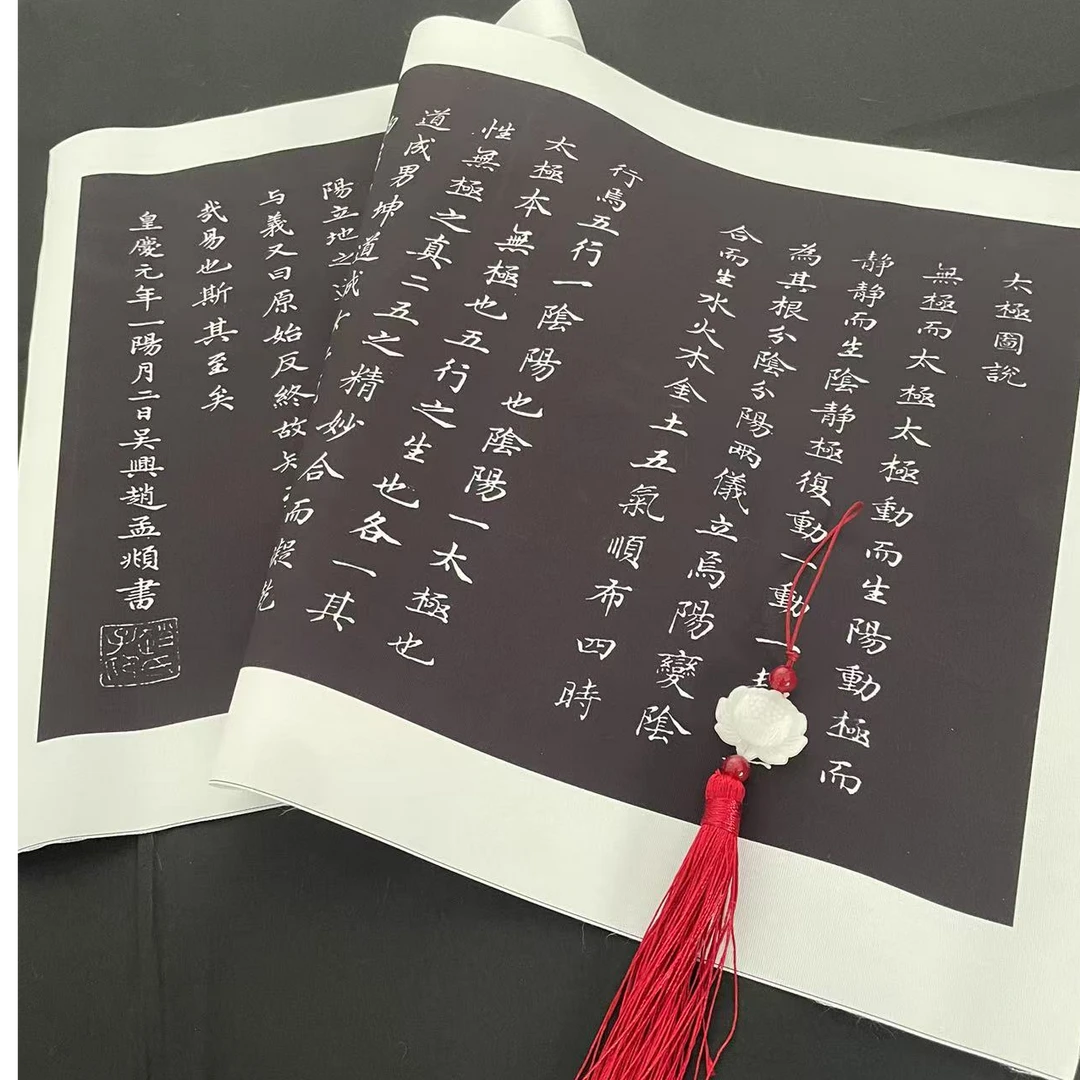 太極圖說
無極而太極太極動而生陽動極而
静静而生陰静極復動一動一
為其根分陰分陽兩儀立焉陽變陰
合而生水火木金土五氣順布四時
行焉五行一陰陽也陰陽一太極也
太極本無極也五行之生也各一其
性無極之真二五之精妙合而凝乾
道成男坤道成
陽立地之
与義又曰原始反終故
哉易也斯其至矣
皇慶元年一陽月二日吳興趙孟頫書
趙氏子昂